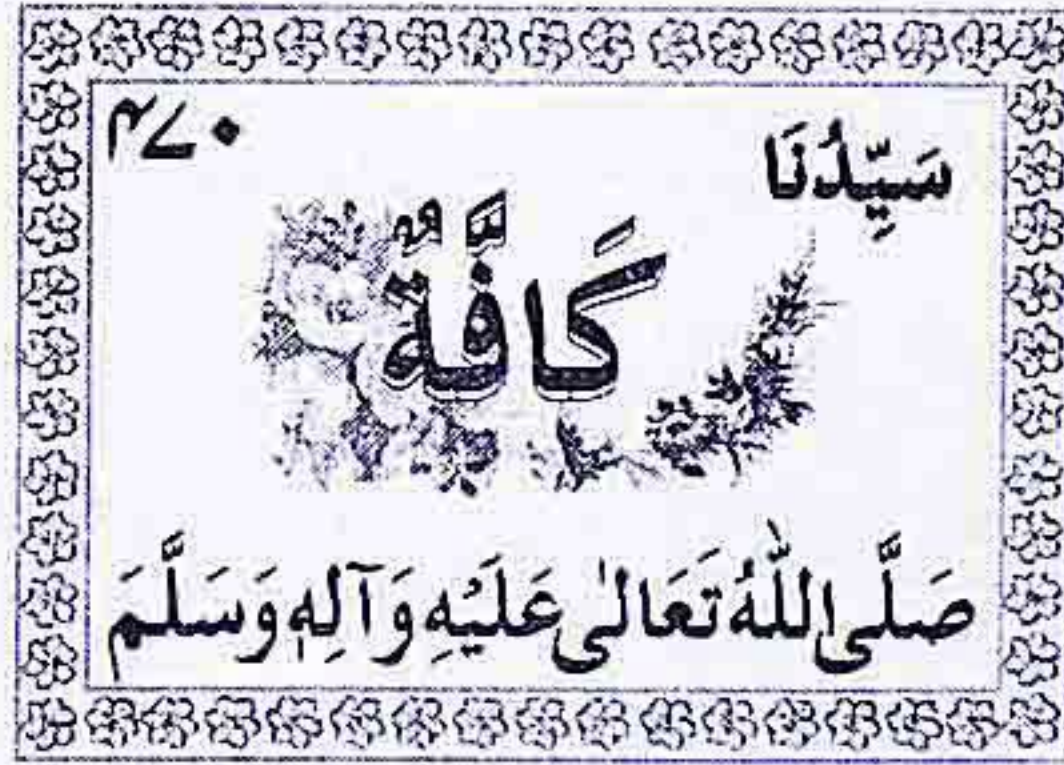 سَيِّدُنَا
۴۷۰
كَافَّةٌ
صَلَّى اللّٰهُ تَعَالٰى عَلَيْهِ وَآلِهٖ وَسَلَّمَ